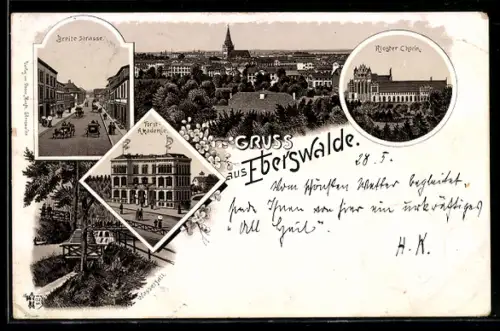 Breite Strasse.
Kloster Chorin.
Forst-
Akademie.
GRUSS
aus Eberswalde.
28. 5.
Vom schönsten Wetter begleitet
sende Ihnen von hier ein urkräftiges
"All Heil".
H. K.
Wasserfall.